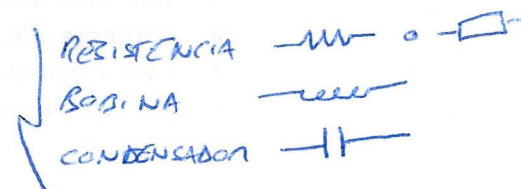 RESISTENCIA o
BOBINA
CONDENSADOR